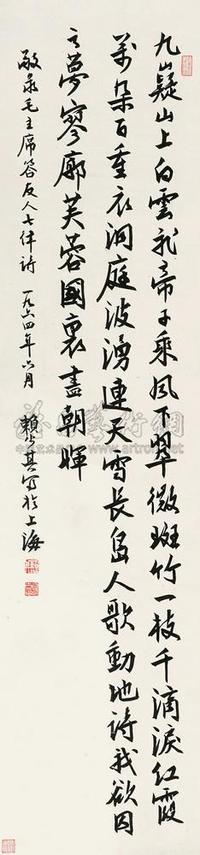 九嶷山上白雲飛帝子乘風下翠微斑竹一枝千滴淚紅霞
萬朵百重衣洞庭波湧連天雪長島人歌動地詩我欲因
之夢寥廓芙蓉國裏盡朝暉
敬录毛主席答友人七律诗 一九六四年六月 賴少其写於上海